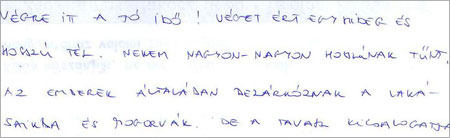 VÉGRE ITT A JÓ IDŐ! VÉGET ÉRT EGY HIDEG ÉS
HOSSZÚ TÉL. NEKEM NAGYON-NAGYON HOSSZÚNAK TŰNT.
AZ EMBEREK ÁLTALÁBAN BEZÁRKÓZNAK A LAKÁ-
SAIKBA ÉS MOGORVÁK. DE A TAVASZ KICSALOGATJA